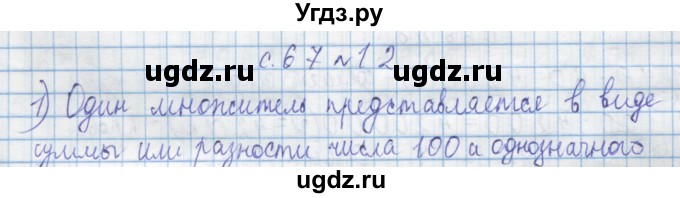 Угдз.ру
с. 67 №12
ugdz.ru ugdz.ru
1) Один множитель представляется в виде
суммы или разности числа 100 и однозначного
ugdz.ru ugdz.ru